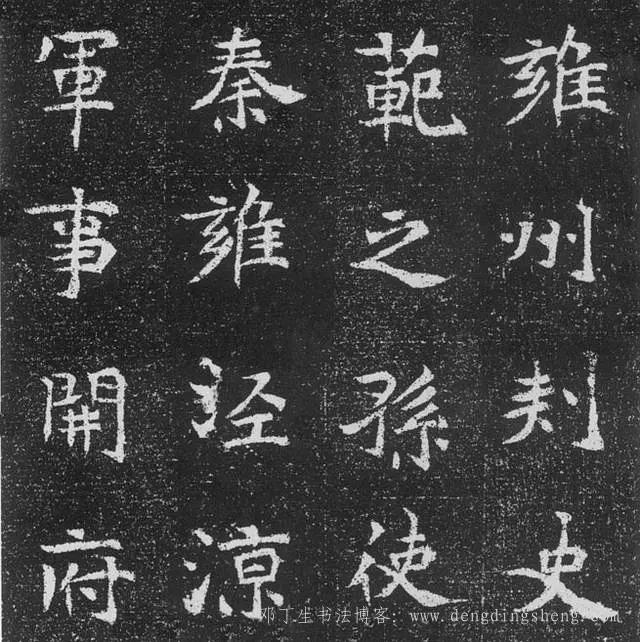 雍州刾史
範之孫使
秦雍泾涼
軍事開府
邓丁生书法博客:www.dengdingsheng.com